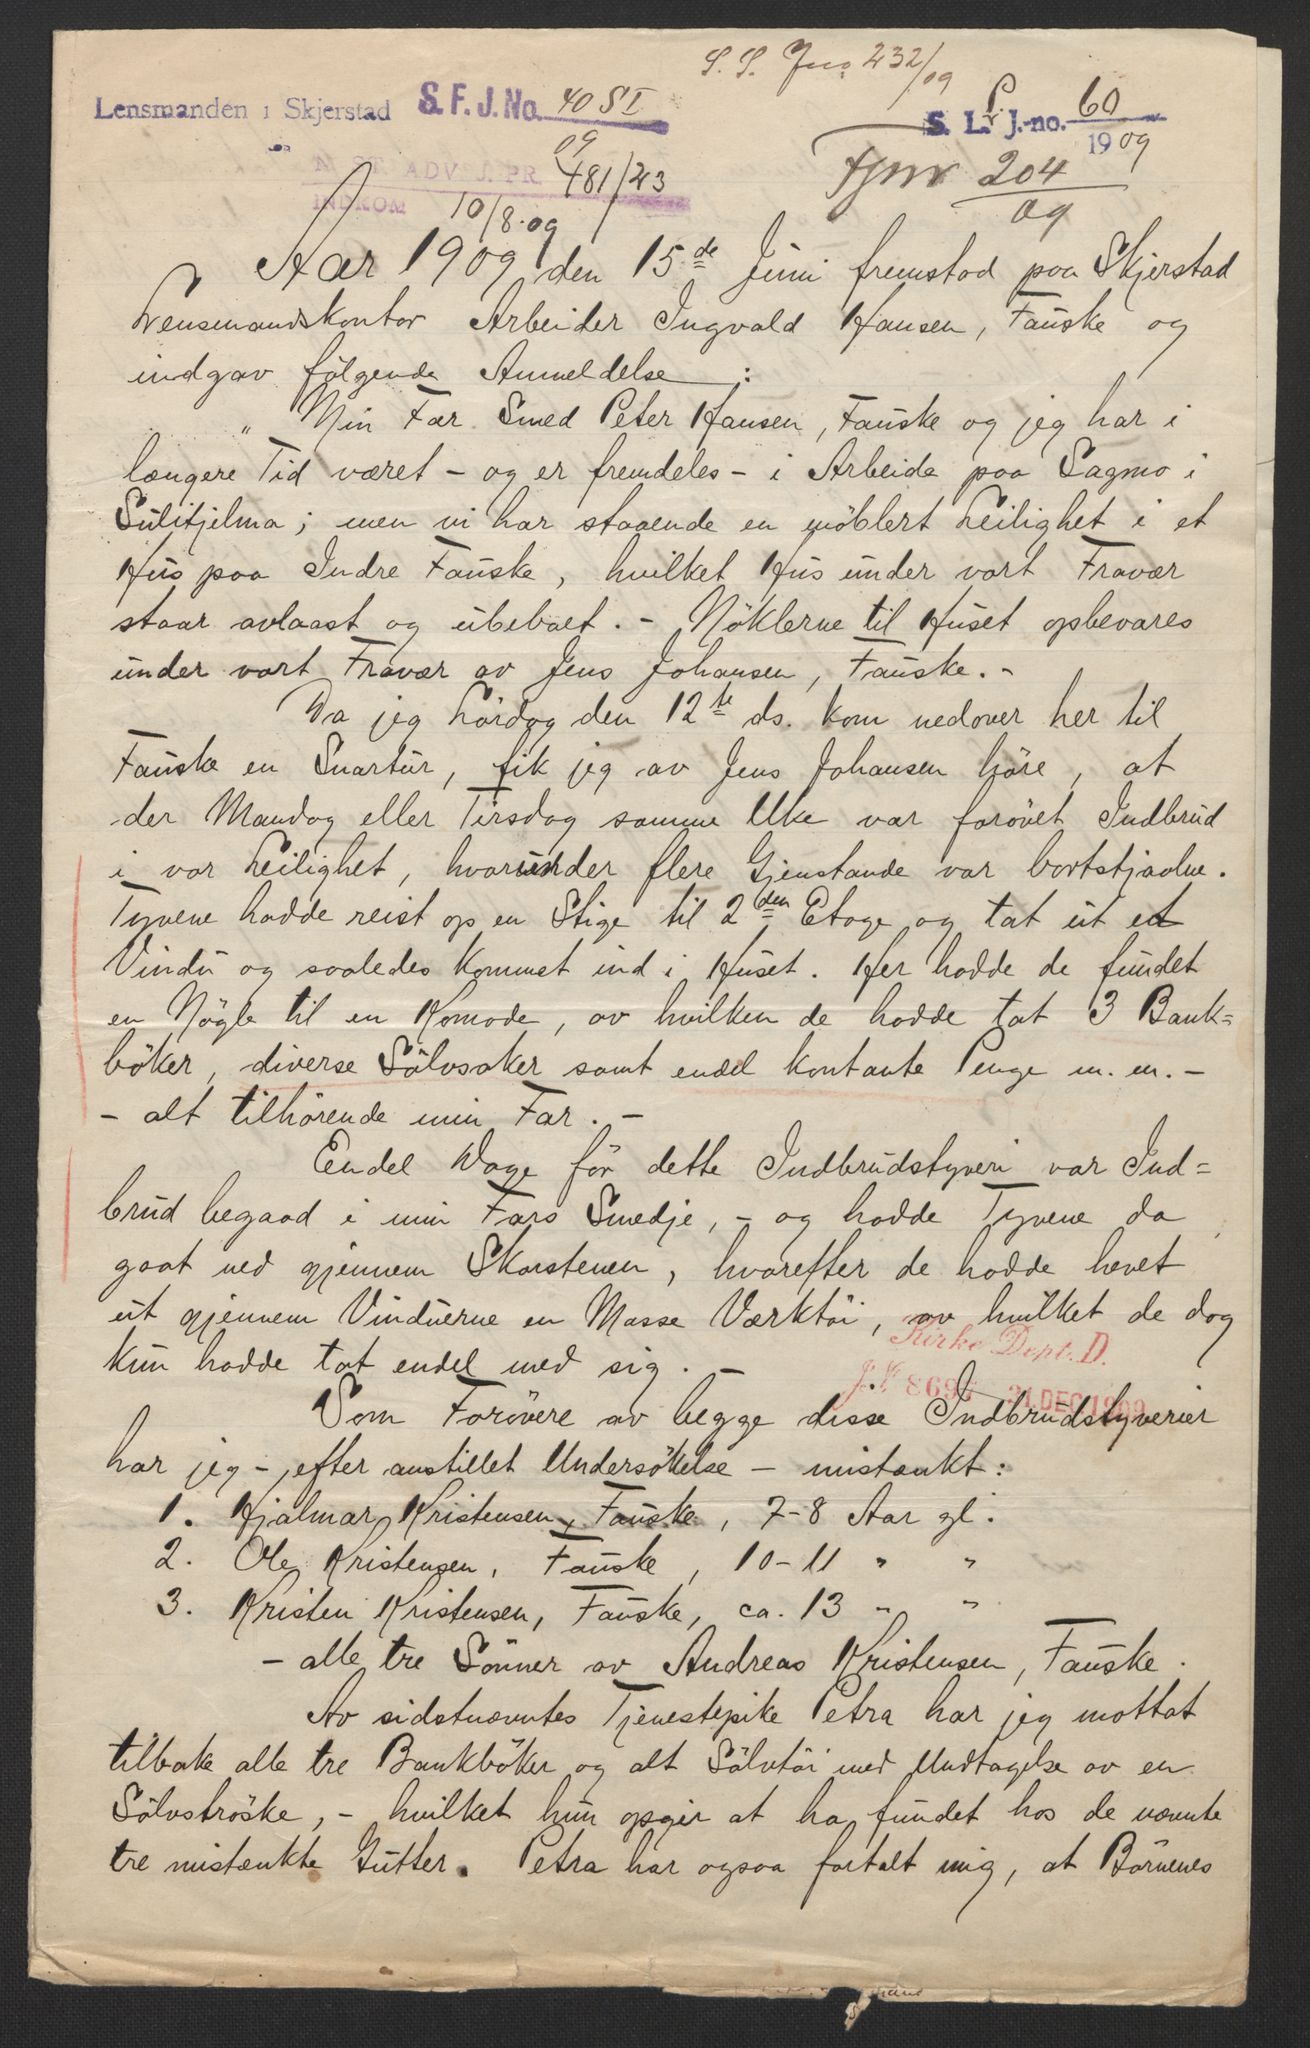 S. S. Jno 232/09
Lensmanden i Skjerstad S. F. J. No. 40 S I 09
S. L. J.-no. 60 1909
N. ST. ADV. J. PR. 481/23
INDKOM 10/8.09
204/09
Aar 1909 den 15de Juni fremstod paa Skjerstad
Lensmandskontor Arbeider Ingvald Hansen, Fauske og
indgav følgende Anmeldelse:
„Min Far Smed Peter Hansen, Fauske og jeg har i
længere Tid været - og er fremdeles - i Arbeide paa Sagmo i
Sulitjelma; men vi har staaende en møblert Leilighet i et
Hus paa Indre Fauske, hvilket Hus under vort Fravær
staar avlaast og ubeboet. - Nöklerne til Huset opbevares
under vort Fravær av Jens Johansen, Fauske. -
Da jeg Lördag den 12te ds. kom nedover her til
Fauske en Snartur, fik jeg av Jens Johansen höre, at
der Mandag eller Tirsdag samme Uke var forövet Indbrud
i vor Leilighet, hvorunder flere Gjenstande var bortstjaalne.
Tyvene hadde reist op en Stige til 2den Etage og tat ut et
Vindu og saaledes kommet ind i Huset. Her hadde de fundet
en Nögle til en Komode, av hvilken de hadde tat 3 Bank=
böker, diverse Sölvsaker samt endel kontante Penge m. m. -
- alt tilhörende min Far. -
Endel Dage för dette Indbrudstyveri var Ind=
brud begaad i min Fars Smedje, - og hadde Tyvene da
gaat ned gjennem Skorstenen, hvorefter de hadde hevet
ut gjennem Vinduerne en Masse Værktöi, av hvilket de dog
kun hadde tat endel med sig. -
Kirke Dept. D.
J. № 869 21 DEC 1909
Som Forövere av begge disse Indbrudstyverier
har jeg - efter anstillet Undersökelse - mistænkt:
1. Hjalmar Kristensen, Fauske, 7-8 Aar gl.
2. Ole Kristensen, Fauske, 10-11 " "
3. Kristen Kristensen, Fauske, ca. 13 " "
- alle tre Sönner av Andreas Kristensen, Fauske.
Av sidstnævntes Tjenestepike Petra har jeg mottat
tilbake alle tre Bankböker og alt Sölvtöi med Undtagelse av en
Sölvströske, - hvilket hun opgir at ha fundet hos de nævnte
tre mistænkte Gutter. Petra har ogsaa fortalt mig, at Börnenes